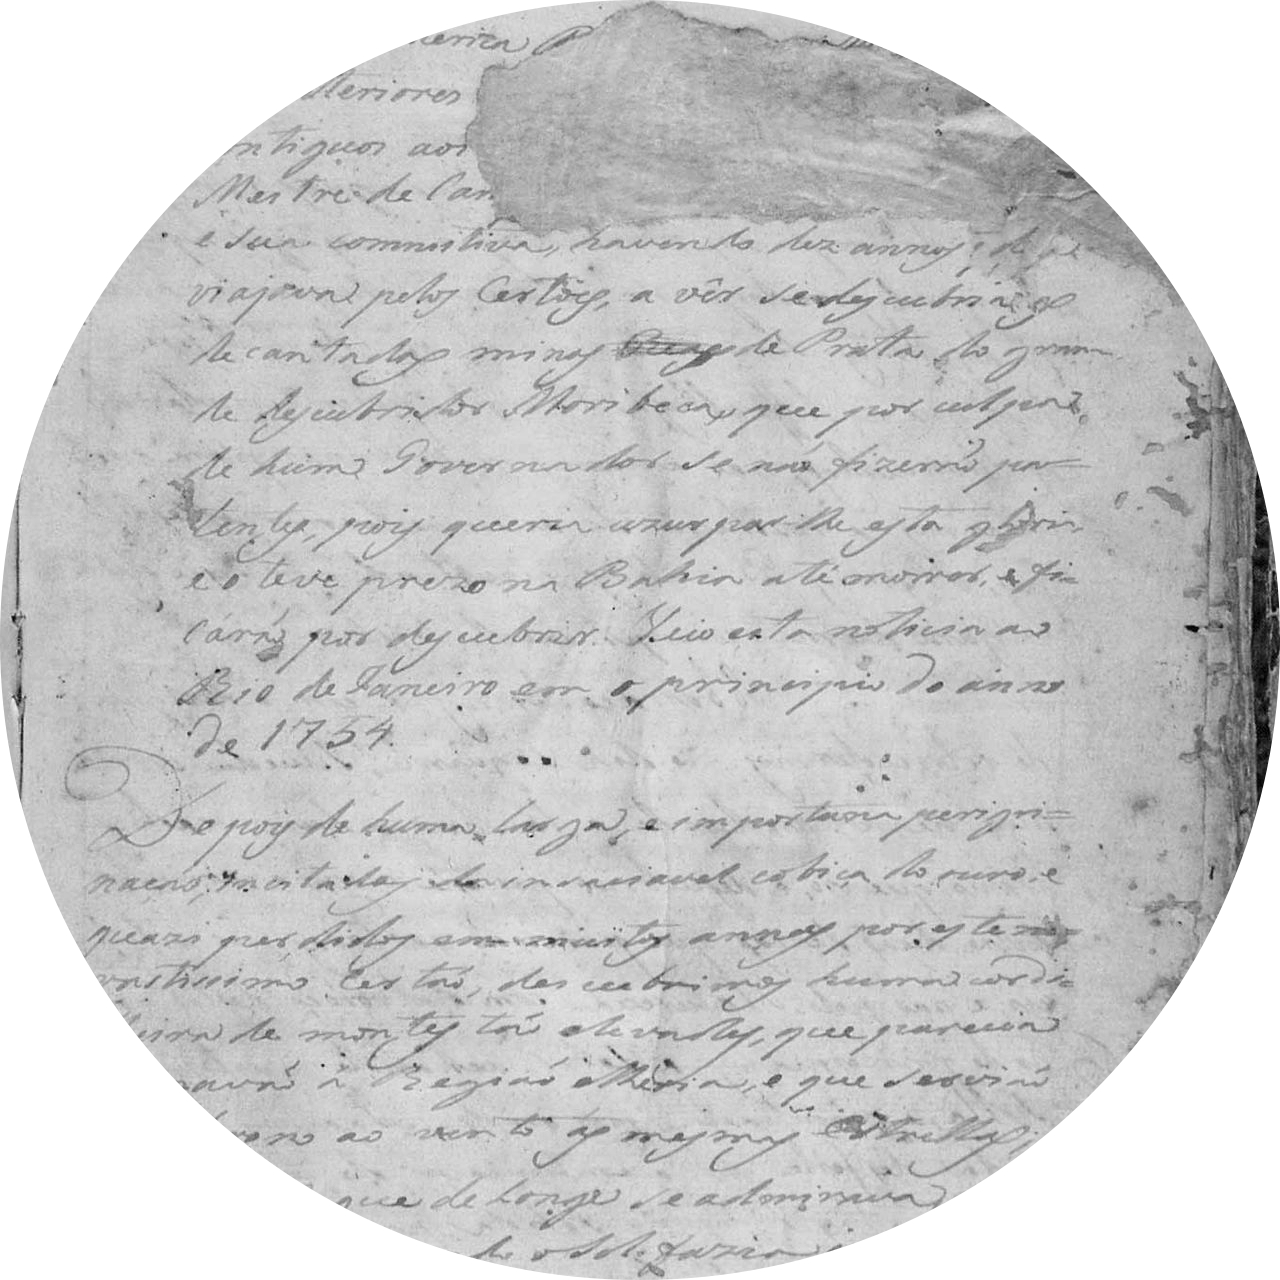 America
interiores
contiguos aos
Mestre de Can
e sua commitiva, havendo dez annos, q
viajava pelos Certões, a vêr se descubria as
decantadas minas de Prata do gran
de descubridor Moribeca, que por culpa
de hum Governador se naõ fizeraõ pa=
tentes, pois queria uzurpar-lhe esta gloria
e o teve prezo na Bahia até morrer, e fi=
caraõ por descubrir. Veio esta noticia ao
Rio de Janeiro em o principio do anno
de 1754.
Depois de huma larga, e importuna perigri=
naçaõ, incitados da insaciavel cobiça do ouro, e
quazi perdidos em muitos annos por este
vastissimo Certaõ, descubrimos huma cordi=
lheira de montes taõ elevados, que parecia
gavaõ á Regiaõ etheria, e que serviaõ
trono ao vento ás mesmas Estrellas;
que de longe se admirava
de o Sol fazia